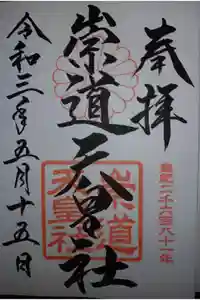 奉拝
皇紀二千六百八十一年
崇道天皇社
崇道
天皇社
令和三年五月十五日